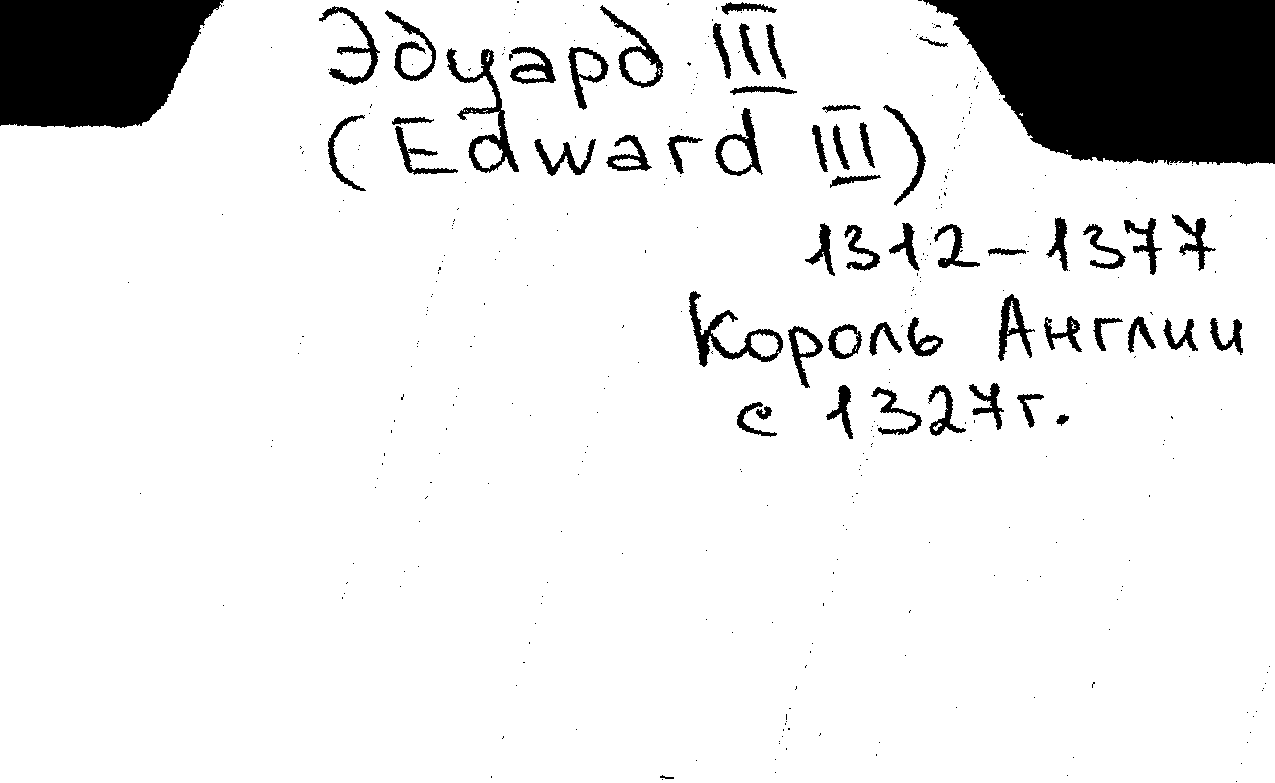 Эдуард III
(Edward III)
1312-1377
Король Англии
с 1327г.